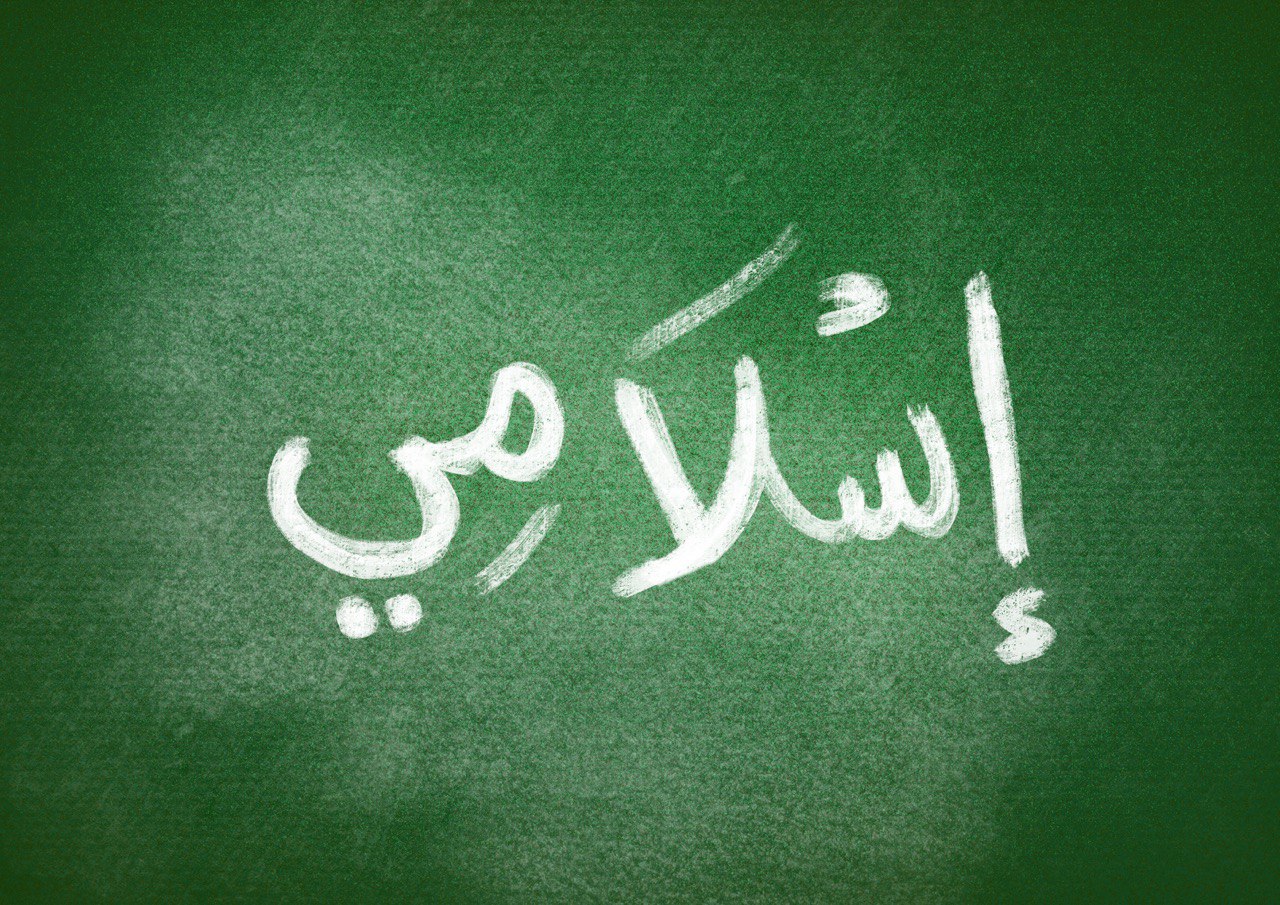 إسْلَامِي